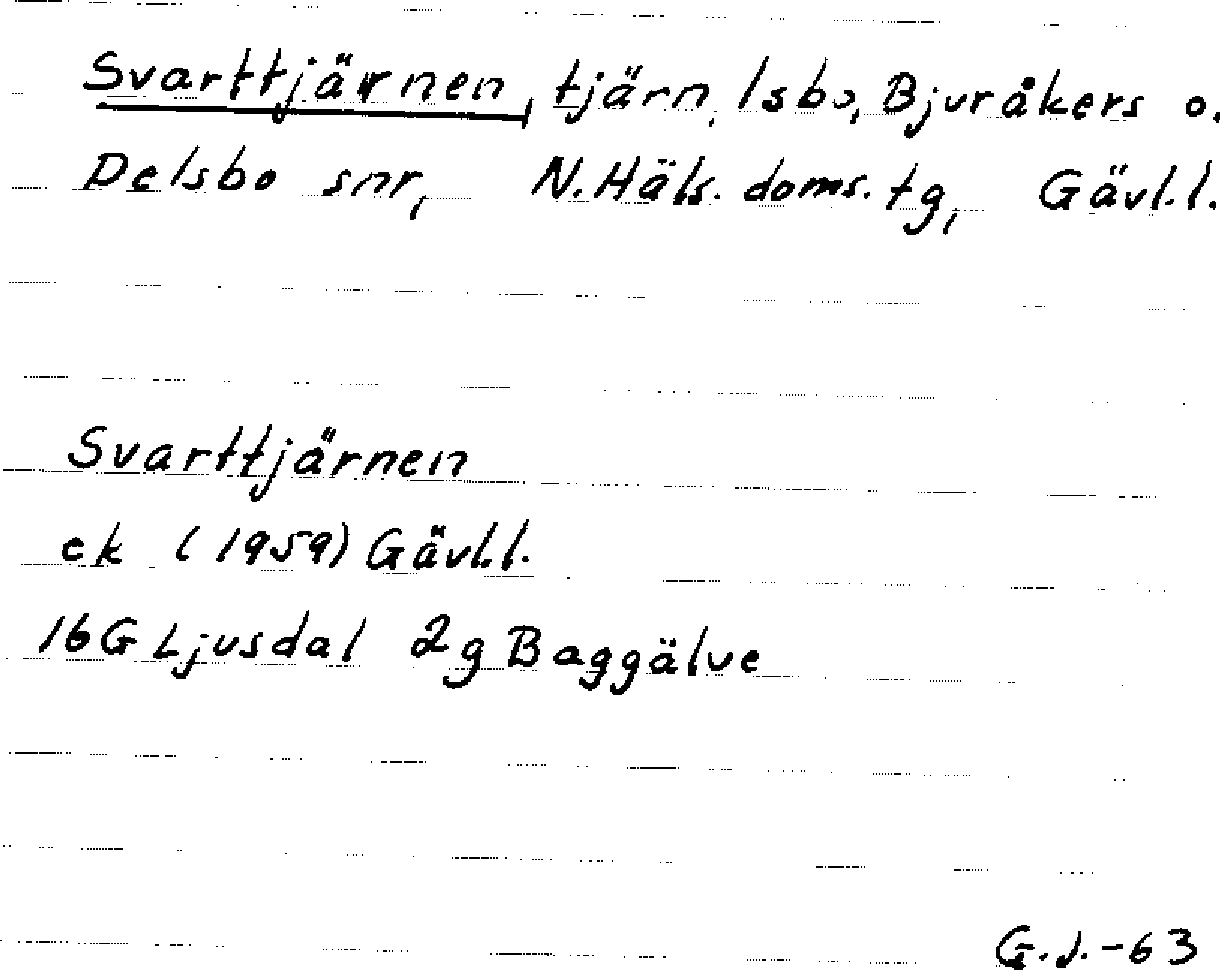 Svarttjärnen, tjärn, Isbo, Bjuråkers o.
Delsbo snr, N.Häls. doms.tg, Gävl.l.
Svarttjärnen
ek (1959) Gävl.l.
16G Ljusdal 2g Baggälve
G.J.-63